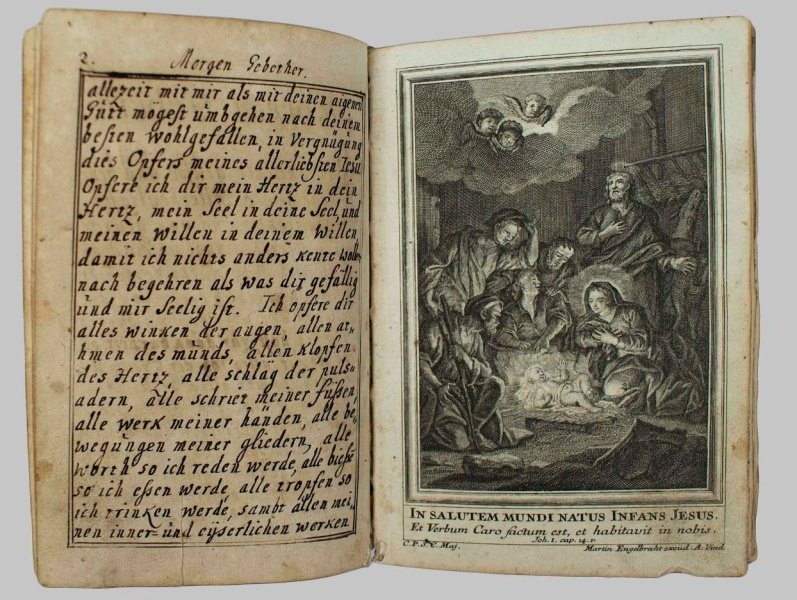 2.
Morgen Gebether.
allezeit mit mir als mit deinen aigenen
Gutt mögest umbgehen nach deinem
besten wohlgefallen, in Vergnügung
dies Opfers meines allerliebsten Jesu
Opfere ich dir mein Hertz in dein
Hertz, mein Seel in deine Seel, und
meinen Willen in deinem Willen,
damit ich nichts anders heute wolle
nach begehren als was dir gefällig
und mir Seelig ist. Ich opfere dir
alles winken der augen, allen at-
hmen des munds, allen klopfen
des Hertz, alle schläg der puls-
adern, alle schriet meiner füssen,
alle werk meiner händen, alle be-
wegungen meiner gliedern, alle
worth so ich reden werde, alle
so ich essen werde, alle tropfen so
ich trinken werde, sambt allen mei-
nen inner und eÿserlichen werken
IN SALUTEM MUNDI NATUS INFANS JESUS.
Et Verbum Caro factum est, et habitavit in nobis.
Joh. 1. cap. 14. v.
C. P. S. C. Maj.
Martin Engelbrecht excud. A. Vind.